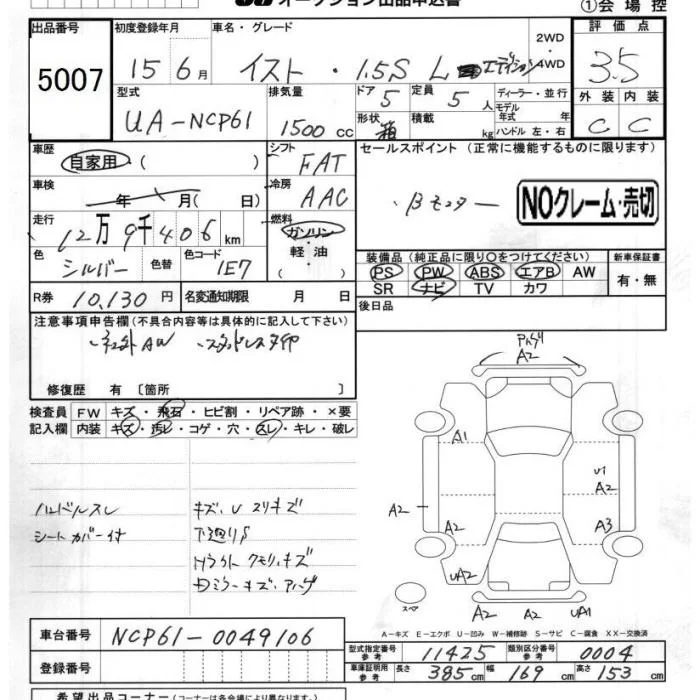 オークション出品申込書
①会場控
出品番号 初度登録年月 車名・グレード 2WD 評価点
5007 15年6月 イスト・1.5S L エディション 4WD 3.5
型式 排気量 ドア 定員 ディーラー・並行 外装 内装
UA-NCP61 1500cc 5 5人 モデル年式 年 C C
形状 箱 積載 kg ハンドル 左・右
車歴 自家用( ) シフト FAT セールスポイント(正常に機能するものに限ります)
車検 年 月( 日) 冷房 AAC
NOクレーム・売切
走行 12万9千406km 燃料 ガソリン・軽油( )
装備品(純正品に限り○をつけてください) 新車保証書
色 シルバー 色替 色コード 1E7 PS PW ABS エアB AW 有・無
SR ナビ TV カワ
R券 10,130円 名変通知期限 月 日 後日品
注意事項申告欄(不具合内容等は具体的に記入して下さい)
修復歴 有 [箇所 ]
検査員 FW キズ・飛石・ヒビ割・リペア跡・×要
記入欄 内装 キズ・汚レ・コゲ・穴・スレ・キレ・破レ
ハンドルスレ キズ、U スリキズ
シートカバー付 下廻りS
Hライト クモリ、キズ
Dミラーキズ、ハゲ
A2
A1
U1
A2
A2
A2 A3
UA2
スペア A2 A2 UA1
A-キズ E-エクボ U-凹み W-補修跡 S-サビ C-腐食 XX-交換済
車台番号 NCP61-0049106
型式指定番号 参考 11425 類別区分番号 参考 0004
登録番号 車庫証明用 参考 長さ 385cm 幅 169cm 高さ 153cm
希望出品コーナー(コーナーは各会場により異なります)